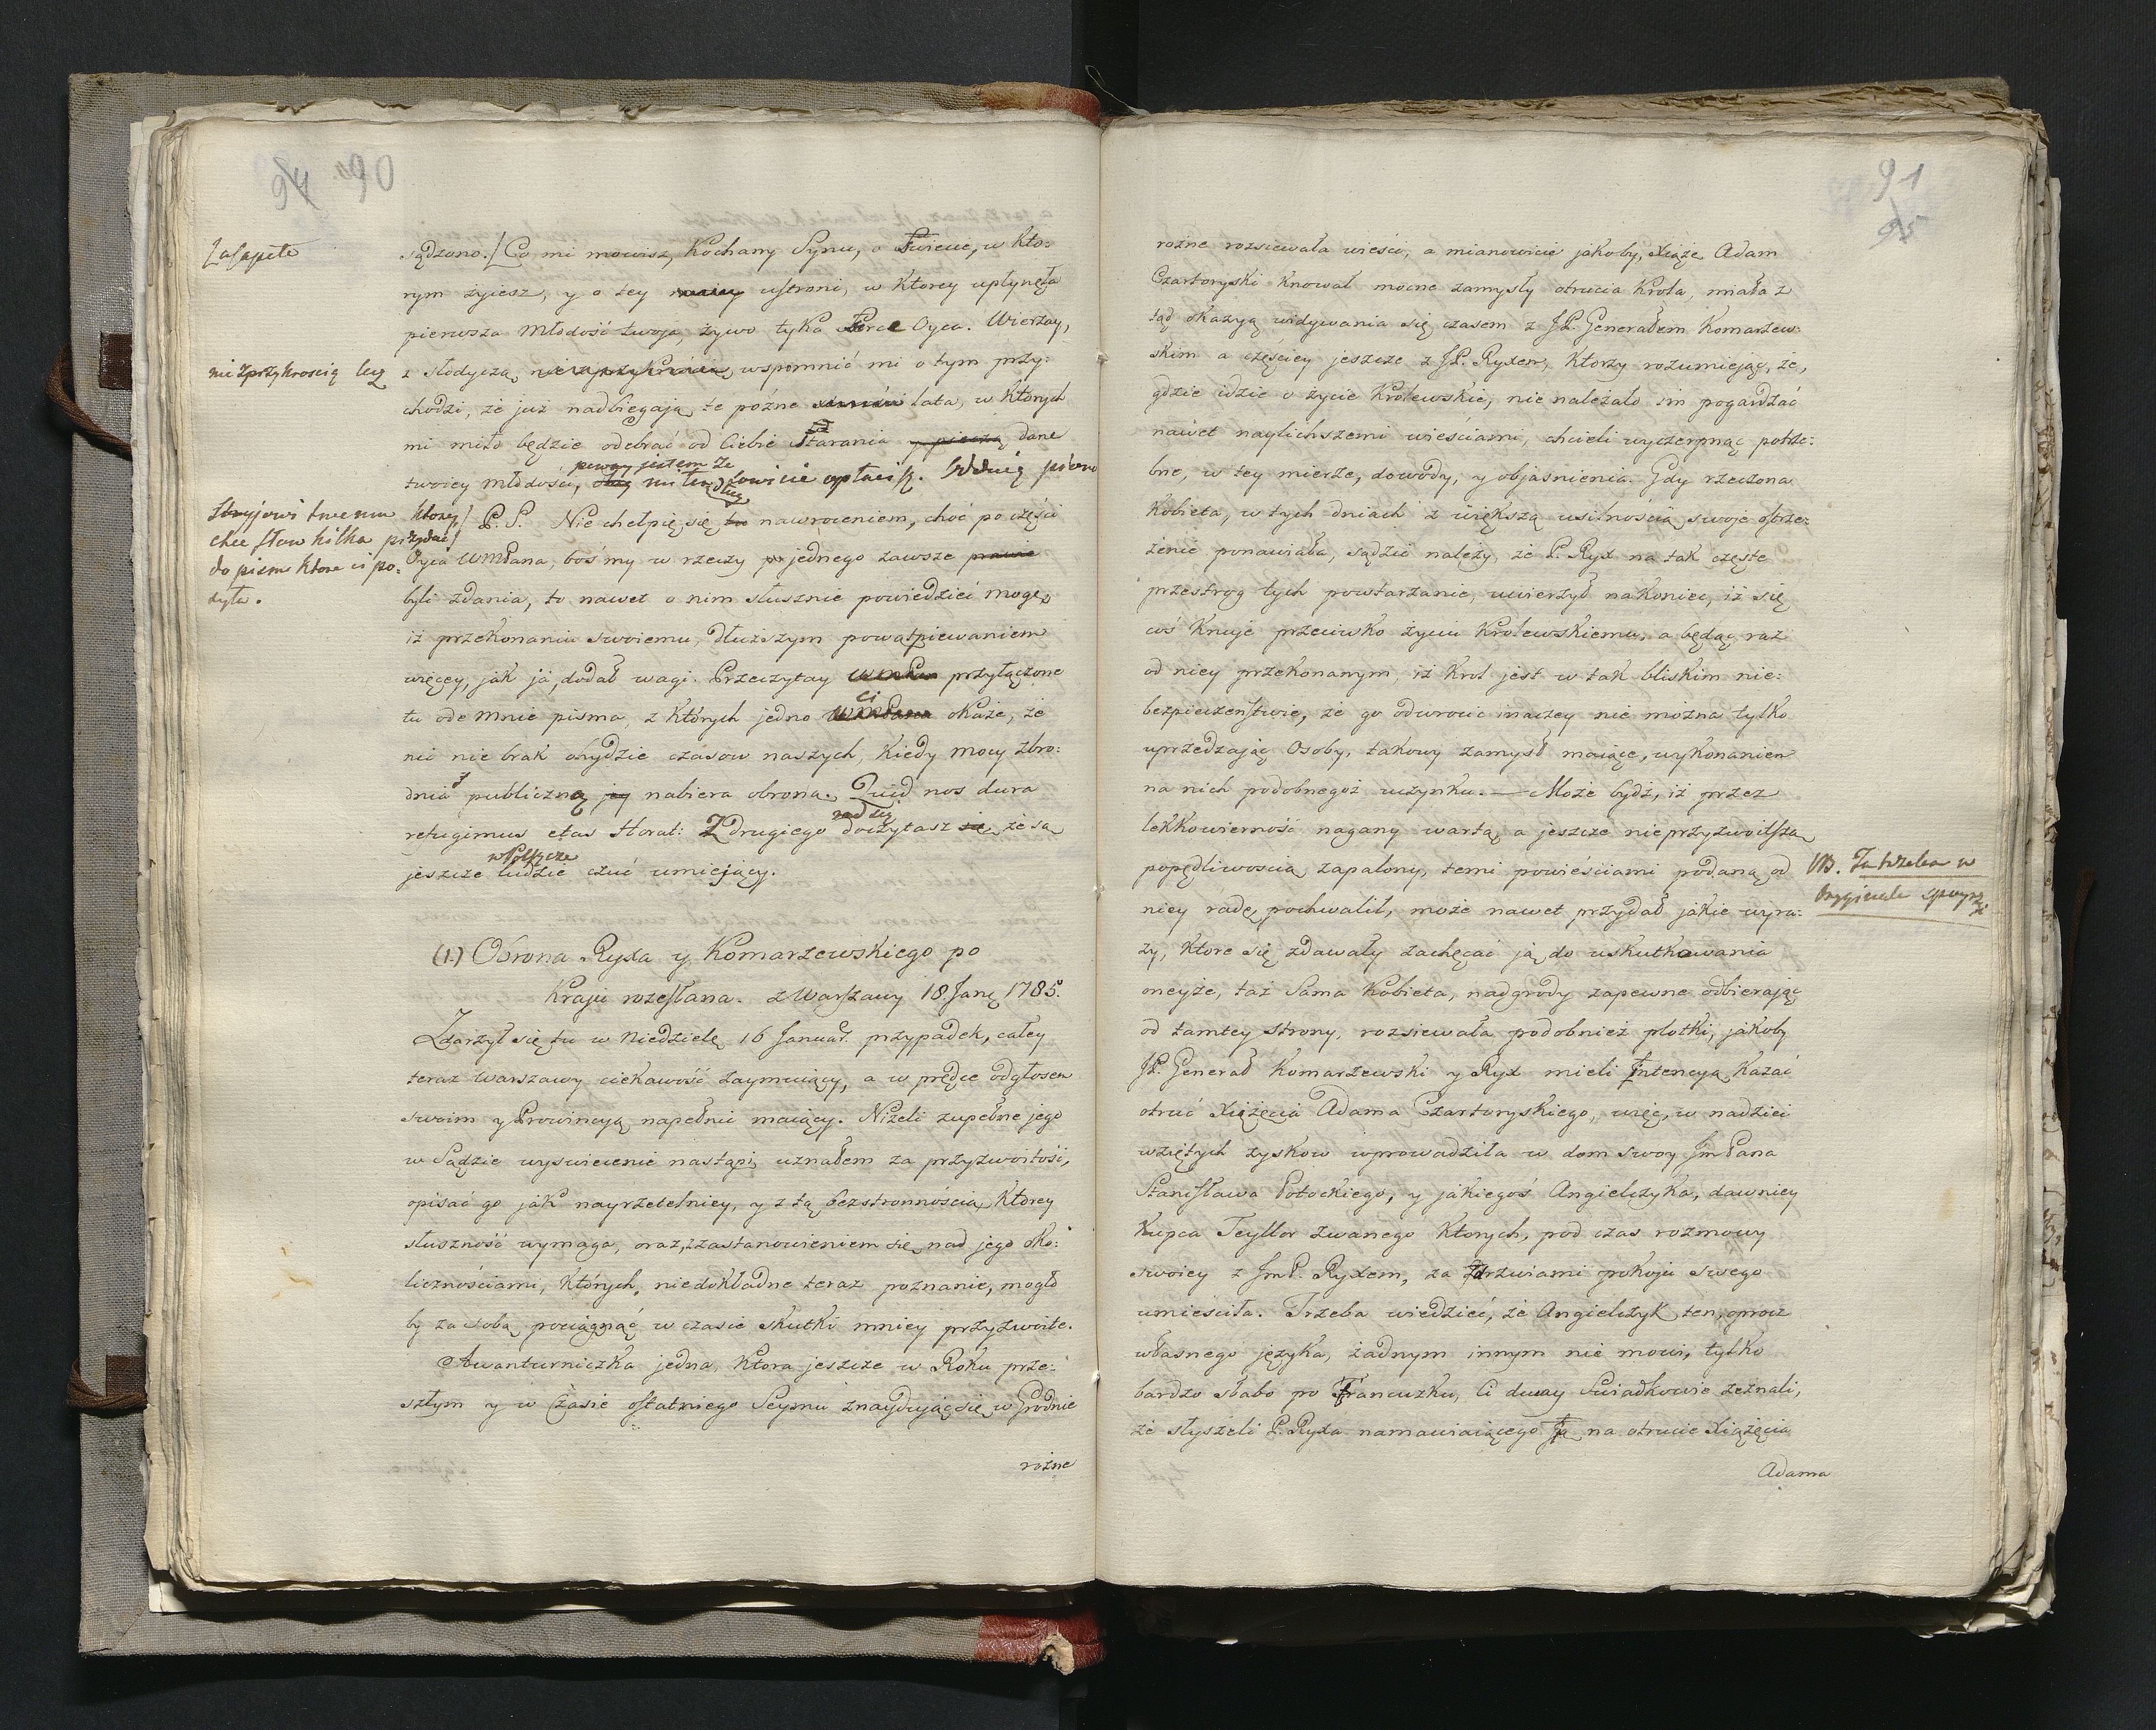 94 90
Zasępite
sądzono./ Co mi mowisz, Kochany Synu, o Swiecie, w kto:
rym żyiesz, y o tey ustroni, w ktorey upłynęła
pierwsza Młodość twoja, żywo tyka Serce Oyca. Wierzay,
nie zprzykrością lecz
z słodyczą nie z przykrością, wspomnić mi o tym przy:
chodzi, że już nadbiegają te poźne lata, w ktorych
mi miło będzie odebrać od Ciebie Starania y pieczą dane
pewny jestem że
twoiey młodości, sowicie opłacisz. Oddaię pismo
dług
Stryjowi twemu ktorey/
chce słow kilka przydać/
do pisma ktore ci po:
syła.
P. S. Nie chełpię się to nawroceniem, choć po części
Oyca WmPana, boś my w rzeczy jednego zawsze prawie
byli zdania, to nawet o nim słusznie powiedzieć mogę,
iż przekonaniu swoiemu, dłuższym powątpiewaniem
więcey, jak ja, dodał wagi. Przeczytay WmPan przyłączone
ci
tu ode mnie pisma, z których jedno WmPanu okaże, że
nic nie brak ohydzie czasow naszych, kiedy mocy zbro:
dnia publiczną jey nabiera obroną. Quid nos dura
refugimus etas Horat: Z drugiego doczytasz się, że są
nad to
w Polszcze
jeszcze ludzie czuć umiejący.
(1.) Obrona Ryxa y Komarzewskiego po
Kraju rozesłana. z Warszawy 18. Janꝛ 1785.
Zdarzył się tu w Niedzielę 16 Januar. przypadek, całey
teraz Warszawy ciekawość zaymuiący, a w prędce odgłosem
swoim y Prowincyą napełnić maiący. Niżeli zupełne jego
w Sądzie wyswiecenie nastąpi, uznałem za przyzwoitość,
opisać go jak nayrzetelniey, y z tą bezstronnością, ktorey
słuszność wymaga, oraz, z zastanowieniem się, nad jego oko:
licznościami, ktorych, niedokładne teraz poznanie, mogło
by za sobą pociągnąć w czasie skutki mniey przyzwoite.
Awanturniczka jedna, ktora jeszcze w Roku prze:
szłym y w Czasie ostatniego Seymu znayduiąc się w Grodnie
rożne
91
95
rożne rozsiewała wieści, a mianowicie jakoby, Xiąże Adam
Czartoryski knował mocne zamysły otrucia Krola, miała z
tąd okazyą widywania się czasem z JP. Generałem Komarzew:
skim a częściey jeszcze z JP. Ryxem, ktorzy rozumiejąc, że,
gdzie idzie o życie Krolewskie, nie należało im pogardzać
nawet naylichszemi wieściami, chcieli wyczerpnąć potrze:
bne, w tey mierze, dowody, y objasnienia. Gdy rzeczona
Kobieta, w tych dniach z większą usilnością swoje ostrze:
żenie ponawiała, sądzić należy, że P. Ryx na tak częste
przestrog tych powtarzanie, uwierzył nakoniec, iż się
coś knuje przeciwko życiu Krolewskiemu, a będąc raz
od niey przekonanym, iż Krol jest w tak bliskim nie:
bezpieczenstwie, że go odwrocic inaczey nie można tylko
uprzedzając Osoby, takowy zamysł maiące, wykonaniem
na nich podobnegoż uczynku. — Może bydź, iż przez
lekkowierność nagany wartą, a jeszcze nieprzyzwoitszą
popędliwoscią zapalony, temi powieściami podaną od
NB. Tu trzeba w
Oryginale speyrzeć
niey radę, pochwalił, może nawet przydał jakie wyra:
zy, ktore się zdawały zachęcać ją do uskutkowania
oneyże, taż Sama Kobieta, nadgrody zapewne odbierając
od tamtey strony, rozsiewała podobnież plotki, jakoby
JP. Generał Komarzewski y Ryx mieli Intencyą kazać
otruć Xiążęcia Adama Czartoryskiego, więc, w nadziei
wziętych zyskow wprowadziła w dom swoy Jm Pana
Stanisława Potockiego, y jakiegoś Angielczyka, dawniey
kupca Teyllor zwanego ktorych, pod czas rozmowy
swoiey z JmP. Ryxem, za drzwiami pokoju swego
umieściła. Trzeba wiedzieć, że Angielczyk ten, oprocz
własnego języka, żadnym innym nie mowi, tylko
bardzo słabo po Francuzku, Ci dway Swiadkowie zeznali,
że słyszeli P. Ryxa namawiaiącego Ją na otrucie Xiążęcia
Adama